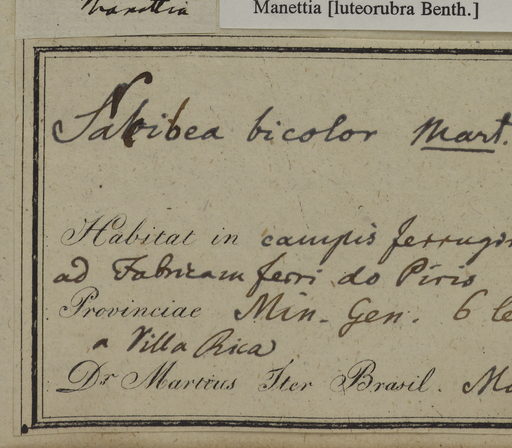 Manettia
Manettia [luteorubra Benth.]
Sabicea bicolor Mart.
Habitat in campis ferrugin
ad Fabricam ferri do Pirio
Provinciae Min. Gen. 6 le
a Villa Rica
Dr Martius Iter Brasil. Ma